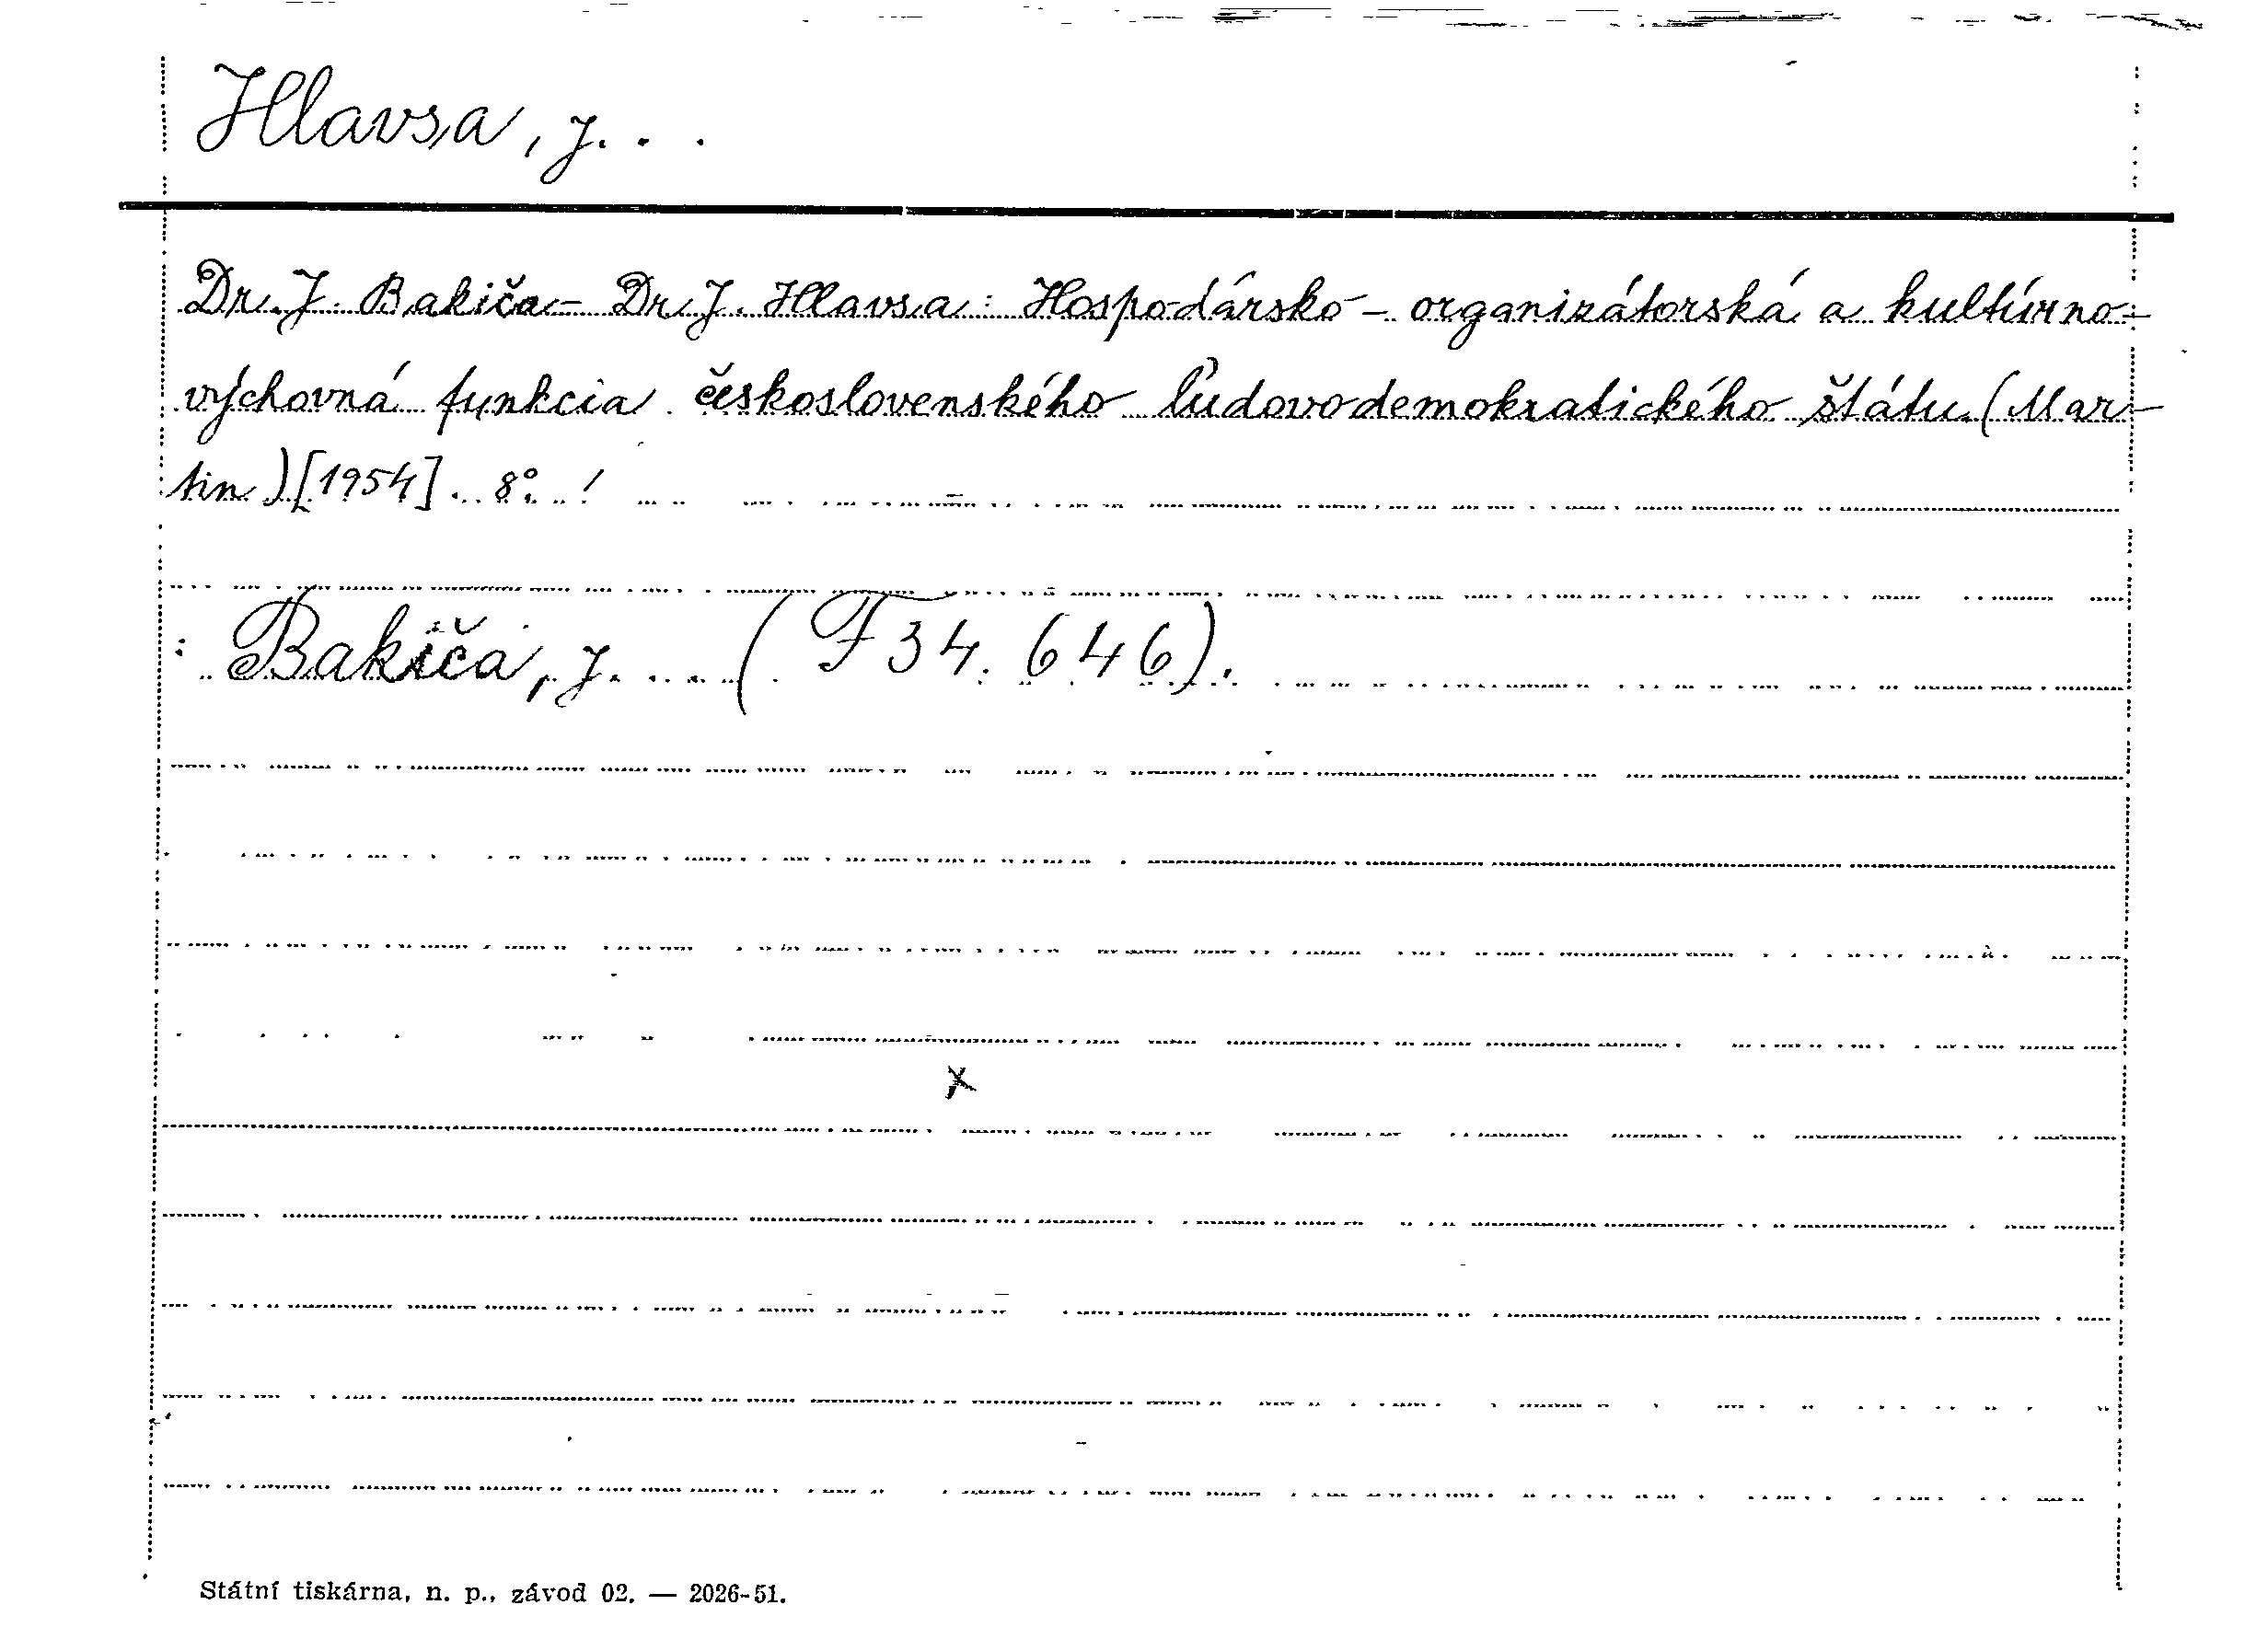 Hlavsa, J. . .
Dr. J. Bakiča - Dr. J. Hlavsa: Hospodársko - organizátorská a kultúrno-
výchovná funkcia československého ľudovodemokratického štátu. (Mar-
tin) [1954]. 8°. !
: Bakiča, J. . . . ( F 34.646).
x
Státní tiskárna, n. p., závod 02. — 2026-51.